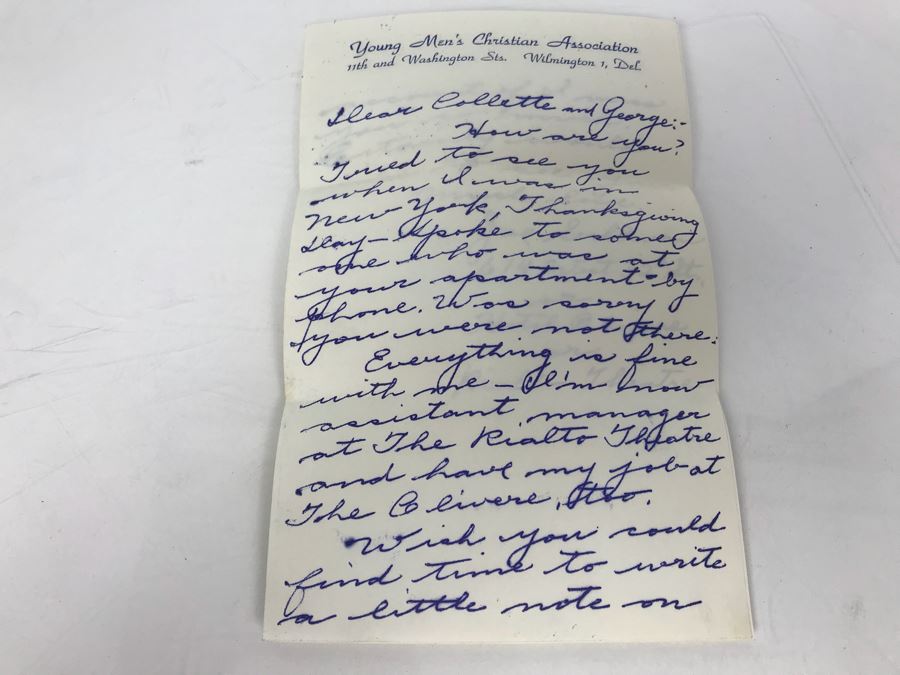 Young Men's Christian Association
11th and Washington Sts. Wilmington 1, Del.
Dear Collette and George:-
How are you?
Tried to see you
when I was in
New York, Thanksgiving
day - spoke to some
one who was at
your apartment - by
phone. Was sorry
you were not there.
Everything is fine
with me - I'm now
assistant manager
at The Rialto Theatre
and have my job at
The Olivere, too.
Wish you could
find time to write
a little note on